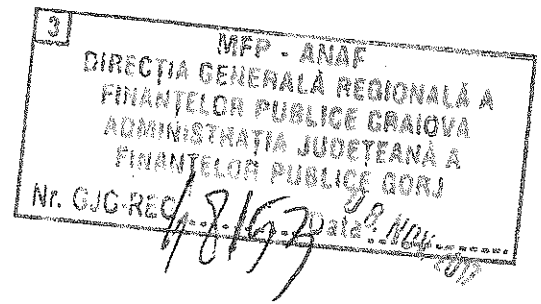 3
MFP - ANAF
DIRECȚIA GENERALĂ REGIONALĂ A
FINANȚELOR PUBLICE CRAIOVA
ADMINISTRAȚIA JUDEȚEANĂ A
FINANȚELOR PUBLICE GORJ
Nr. GJG-REG Data Nov.